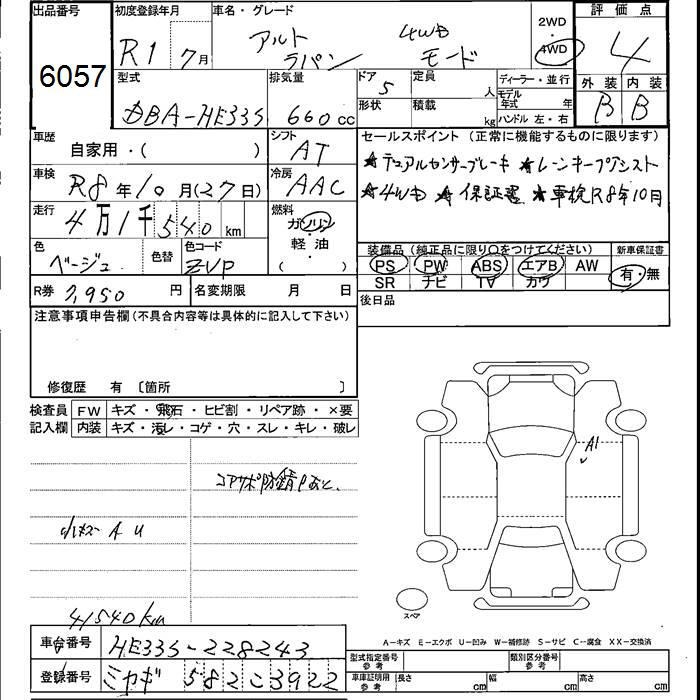 出品番号
6057
初度登録年月
R1 7月
車名・グレード
アルト ラパン 4WD モード
2WD
4WD
評価点
4
外装 内装
B B
型式
DBA-HE33S
排気量
660 cc
ドア 5
定員 人
形状
積載 kg
ディーラー・並行
モデル年式 年
ハンドル 左・右
車歴
自家用・( )
シフト
AT
車検
R8年10月(27日)
冷房
AAC
走行
4万1千540km
燃料
ガソリン
軽油
( )
色
ベージュ
色替
色コード
ZVP
R券 7,950 円
名変期限 月 日
セールスポイント (正常に機能するものに限ります)
★デュアルセンサーブレーキ ★レーンキープアシスト
★4WD ★保証書 ★車検R8年10月
装備品 (純正品に限り○をつけてください)
新車保証書
PS PW ABS エアB AW
有・無
SR ナビ TV カワ
後日品
注意事項申告欄 (不具合内容等は具体的に記入して下さい)
修復歴 有 〔箇所 〕
検査員記入欄
FW キズ・飛石・ヒビ割・リペア跡・×要
内装 キズ・汚レ・コゲ・穴・スレ・キレ・破レ
コアサポ防錆
小キズ A U
A1
スペア
41540km
車台番号 HE33S-228243
登録番号 ミヤギ 582 こ 3922
A-キズ E-エクボ U-凹み W-補修跡 S-サビ C-腐食 XX-交換済
型式指定番号 参考
類別区分番号 参考
車庫証明用 参考
長さ cm 幅 cm 高さ cm